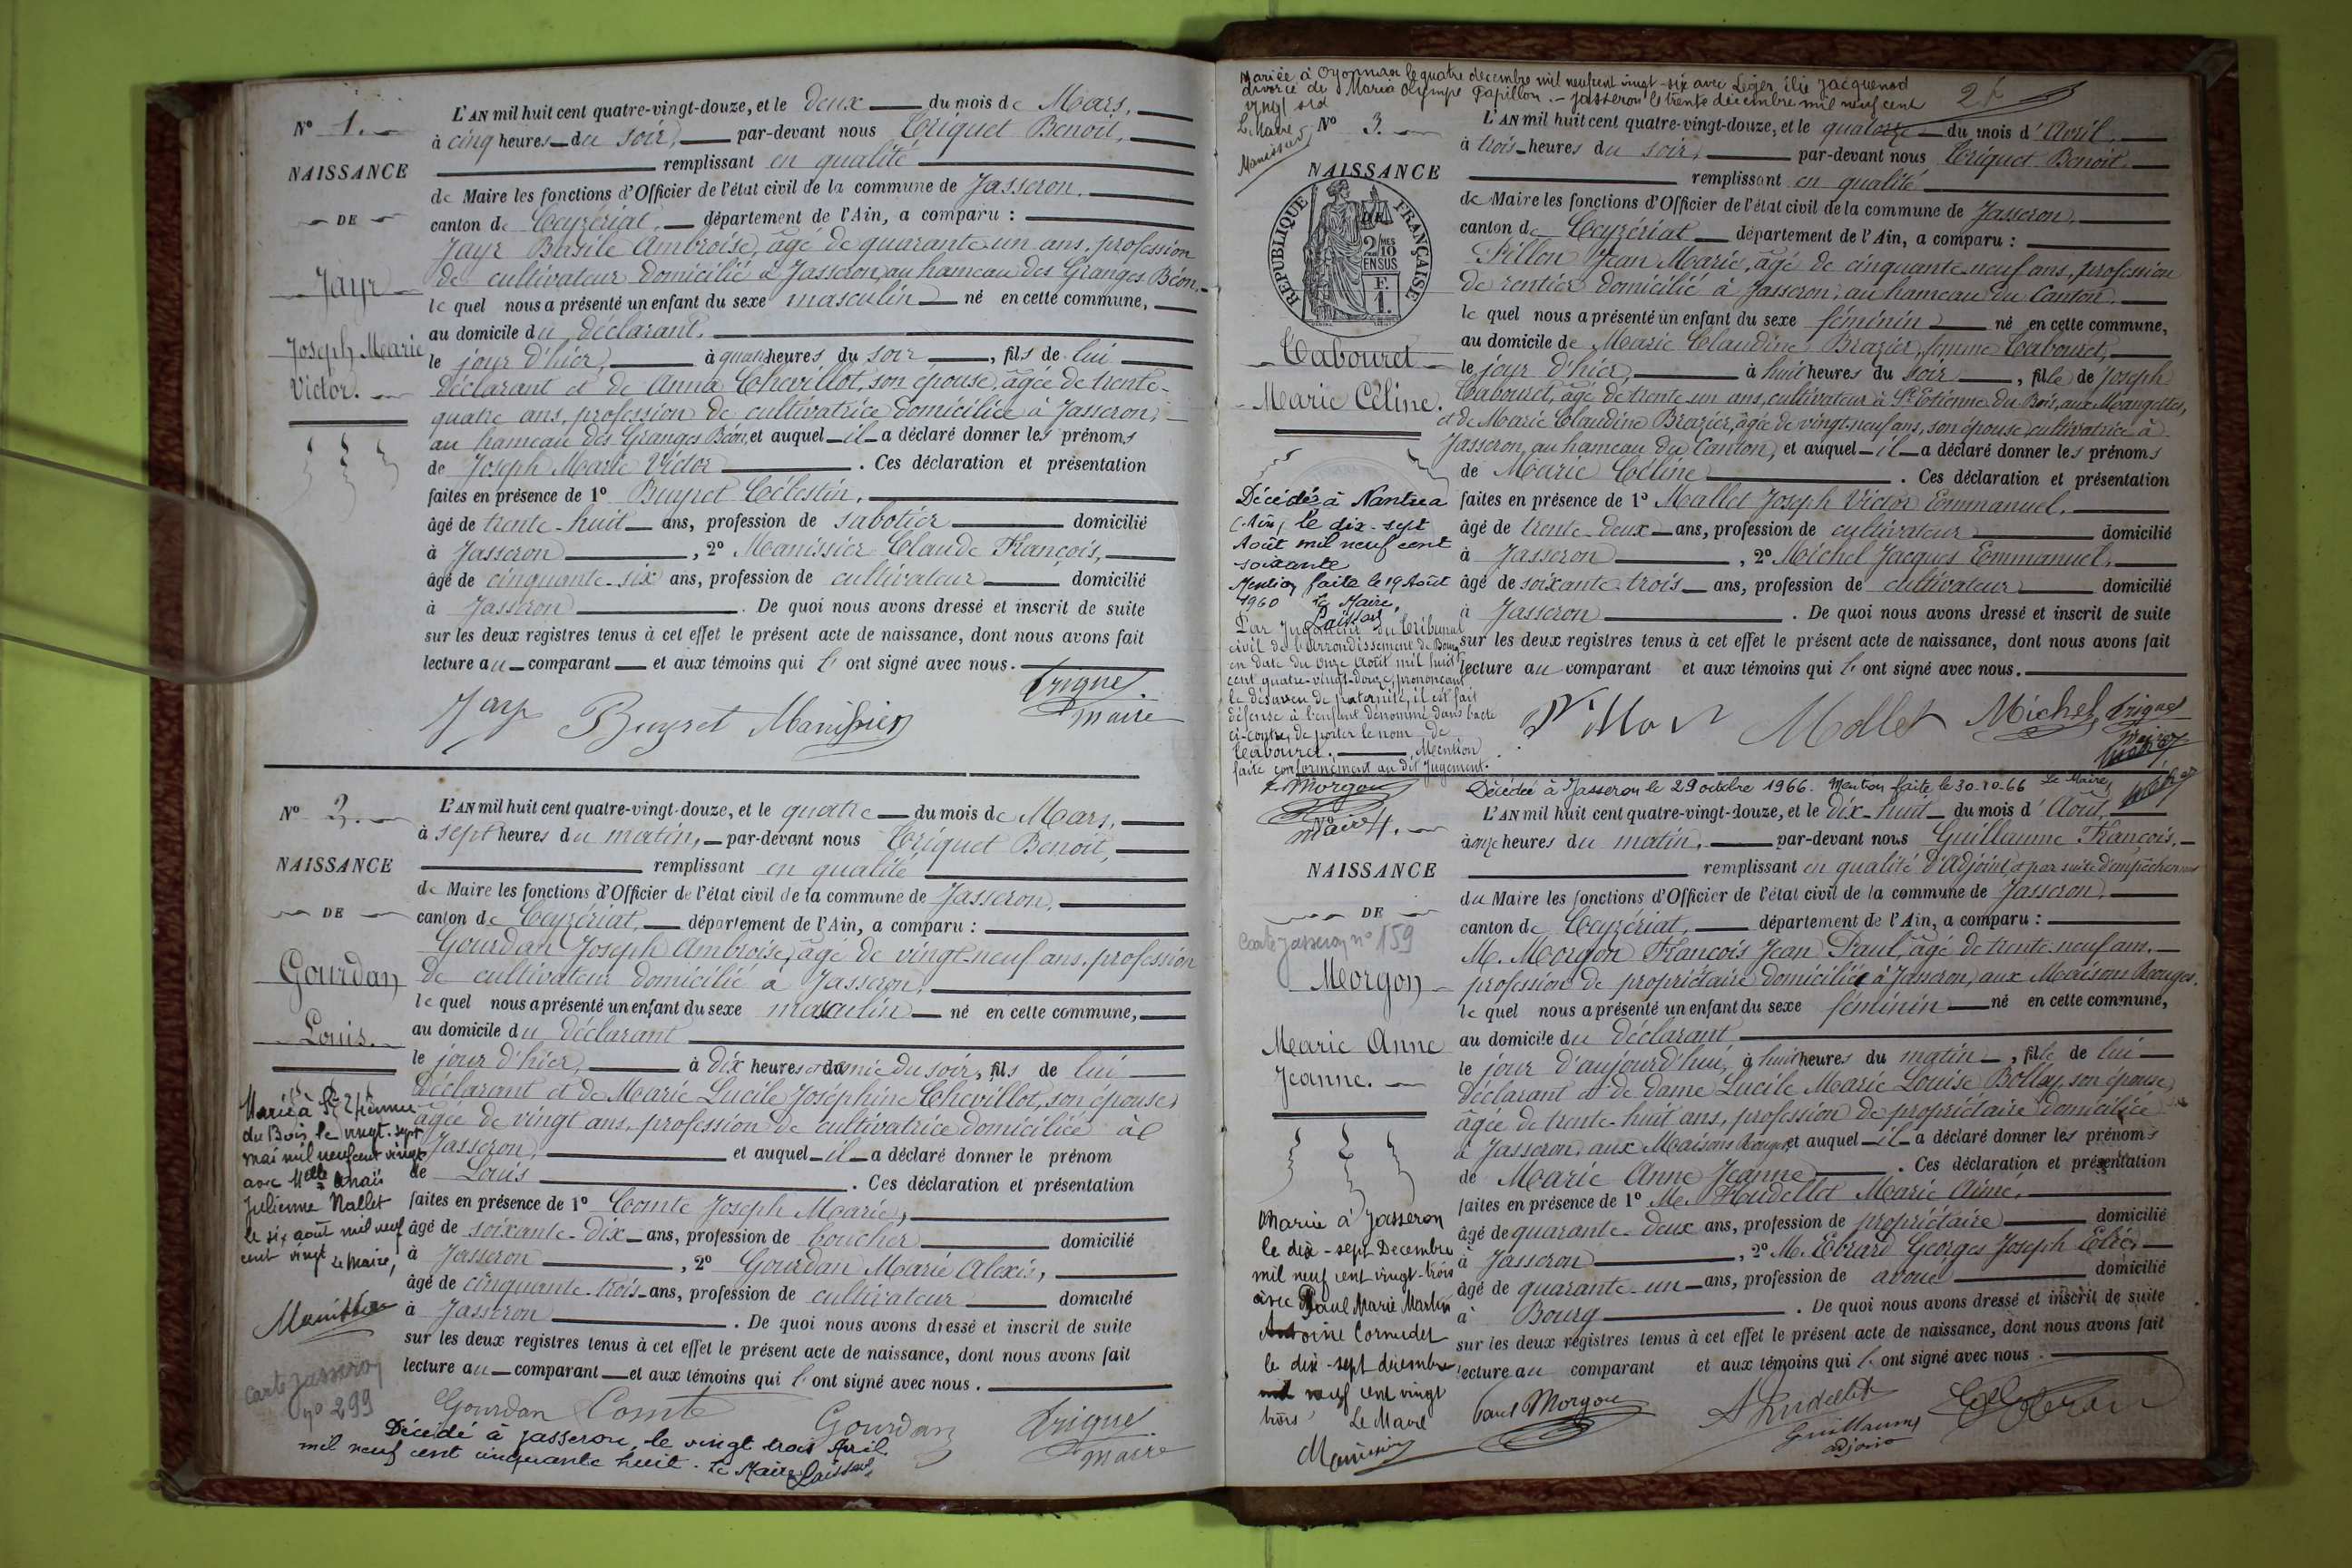 N° 1.
NAISSANCE
DE
Jayr
Joseph Marie
Victor.
L'AN mil huit cent quatre-vingt-douze, et le deux du mois de Mars,
à cinq heures du soir, par-devant nous Triquet Benoit,
remplissant en qualité
de Maire les fonctions d'Officier de l'état civil de la commune de Jasseron.
canton de Ceyzériat, département de l'Ain, a comparu :
Jayr Basile Ambroise, âgé de quarante-un ans, profession
de cultivateur domicilié à Jasseron, au hameau des Granges Béon,
le quel nous a présenté un enfant du sexe masculin né en cette commune,
au domicile du déclarant.
le jour d'hier, à quatre heures du soir, fils de lui
déclarant et de Anna Chevillot, son épouse, âgée de trente-
quatre ans, profession de cultivatrice domiciliée à Jasseron,
au hameau des Granges Béon, et auquel il a déclaré donner les prénoms
de Joseph Marie Victor. Ces déclaration et présentation
faites en présence de 1° Buyret Célestin,
âgé de trente-huit ans, profession de sabotier domicilié
à Jasseron, 2° Manissier Claude François,
âgé de cinquante-six ans, profession de cultivateur domicilié
à Jasseron. De quoi nous avons dressé et inscrit de suite
sur les deux registres tenus à cet effet le présent acte de naissance, dont nous avons fait
lecture au comparant et aux témoins qui l'ont signé avec nous.
Jayr Buyret Manissier Triquet
maire
N° 2.
NAISSANCE
DE
Gourdan
Louis.
L'AN mil huit cent quatre-vingt-douze, et le quatre du mois de Mars,
à sept heures du matin, par-devant nous Triquet Benoit,
remplissant en qualité
de Maire les fonctions d'Officier de l'état civil de la commune de Jasseron,
canton de Ceyzériat, département de l'Ain, a comparu :
Gourdan Joseph Ambroise, âgé de vingt-neuf ans, profession
de cultivateur domicilié à Jasseron,
le quel nous a présenté un enfant du sexe masculin né en cette commune,
au domicile du déclarant
le jour d'hier, à dix heures et demie du soir, fils de lui
déclarant et de Marie Lucile Joséphine Chevillot, son épouse,
âgée de vingt ans, profession de cultivatrice domiciliée à
Jasseron, et auquel il a déclaré donner le prénom
de Louis. Ces déclaration et présentation
faites en présence de 1° Comte Joseph Marie,
âgé de soixante-dix ans, profession de boucher domicilié
à Jasseron, 2° Gourdan Marie Alexis,
âgé de cinquante-trois ans, profession de cultivateur domicilié
à Jasseron. De quoi nous avons dressé et inscrit de suite
sur les deux registres tenus à cet effet le présent acte de naissance, dont nous avons fait
lecture au comparant et aux témoins qui l'ont signé avec nous.
Gourdan Comte Gourdan Triquet
maire
Marié à St Etienne
du Bois le vingt-sept
mai mil neuf cent vingt
avec Melle Anaïs
Julienne Nallet
le six août mil neuf
cent vingt Le Maire,
Manissier
Carte Jasseron
n° 299
Décédé à Jasseron, le vingt trois Avril
mil neuf cent cinquante huit. Le Maire,
Mariée à Oyonnax le quatre décembre mil neuf cent vingt-six avec Léger, Elie Jacquenod
divorcé de Maria Olympe Papillon. - Jasseron le trente décembre mil neuf cent
vingt six
Le Maire
Manissier
2
N° 3.
NAISSANCE
DE
RÉPUBLIQUE FRANÇAISE
2/10 EN SUS
F.
1.
Tabouret
Marie Céline.
L'AN mil huit cent quatre-vingt-douze, et le quatorze du mois d'Avril
à trois heures du soir, par-devant nous Triquet Benoit
remplissant en qualité
de Maire les fonctions d'Officier de l'état civil de la commune de Jasseron,
canton de Ceyzériat département de l'Ain, a comparu :
Pillon Jean Marie, âgé de cinquante-neuf ans, profession
de rentier domicilié à Jasseron, au hameau du Canton,
le quel nous a présenté un enfant du sexe féminin né en cette commune,
au domicile de Marie Claudine Brazier, femme Tabouret,
le jour d'hier, à huit heures du soir, fille de Joseph
Tabouret, âgé de trente-un ans, cultivateur à St Etienne du Bois, aux Mangettes,
et de Marie Claudine Brazier, âgée de vingt-neuf ans, son épouse, cultivatrice à
Jasseron, au hameau du Canton, et auquel il a déclaré donner les prénoms
de Marie Céline. Ces déclaration et présentation
faites en présence de 1° Mallet Joseph Victor Emmanuel,
âgé de trente-deux ans, profession de cultivateur domicilié
à Jasseron, 2° Michel Jacques Emmanuel,
âgé de soixante-trois ans, profession de cultivateur domicilié
à Jasseron. De quoi nous avons dressé et inscrit de suite
sur les deux registres tenus à cet effet le présent acte de naissance, dont nous avons fait
lecture au comparant et aux témoins qui l'ont signé avec nous.
Pillon Mollet Michel Triquet
maire
Décédée à Nantua
(Ain) le dix-sept
Août mil neuf cent
soixante
Mention faite le 19 Août
1960 Le Maire,
Par Jugement du Tribunal
civil de l'Arrondissement de Bourg
en date du onze Août mil huit
cent quatre-vingt-douze, prononçant
le désaveu de paternité, il est fait
défense à l'enfant dénommé dans l'acte
ci-contre, de porter le nom de
Tabouret. Mention
faite conformément au dit Jugement.
Morgon
maire
Décédée à Jasseron le 29 octobre 1966. Mention faite le 30.10.66 Le Maire,
N° 4.
NAISSANCE
DE
Carte Jasseron n° 159
Morgon
Marie Anne
Jeanne.
L'AN mil huit cent quatre-vingt-douze, et le dix-huit du mois d'Août,
à onze heures du matin, par-devant nous Guillaume François,
remplissant en qualité d'Adjoint et par suite d'empêchement
du Maire les fonctions d'Officier de l'état civil de la commune de Jasseron,
canton de Ceyzériat, département de l'Ain, a comparu :
M. Morgon François Jean Paul, âgé de trente-neuf ans,
profession de propriétaire domicilié à Jasseron, aux Maisons Rouges,
le quel nous a présenté un enfant du sexe féminin né en cette commune,
au domicile du déclarant,
le jour d'aujourd'hui, à huit heures du matin, fille de lui
déclarant et de dame Lucile Marie Louise Bollay son épouse,
âgée de trente-huit ans, profession de propriétaire domiciliée
à Jasseron, aux Maisons Rouges, et auquel il a déclaré donner les prénoms
de Marie Anne Jeanne. Ces déclaration et présentation
faites en présence de 1° M. Hudellet Marie Aimé,
âgé de quarante-deux ans, profession de propriétaire domicilié
à Jasseron, 2° M. Ebrard Georges Joseph
âgé de quarante-un ans, profession de avoué domicilié
à Bourg. De quoi nous avons dressé et inscrit de suite
sur les deux registres tenus à cet effet le présent acte de naissance, dont nous avons fait
lecture au comparant et aux témoins qui l'ont signé avec nous.
Paul Morgon A Hudellet
Guillaume
adjoint
Mariée à Jasseron
le dix-sept Décembre
mil neuf cent vingt-trois
avec Paul Marie Martin
Antoine Cornudet
le dix-sept décembre
mil neuf cent vingt
trois Le Maire
Manissier